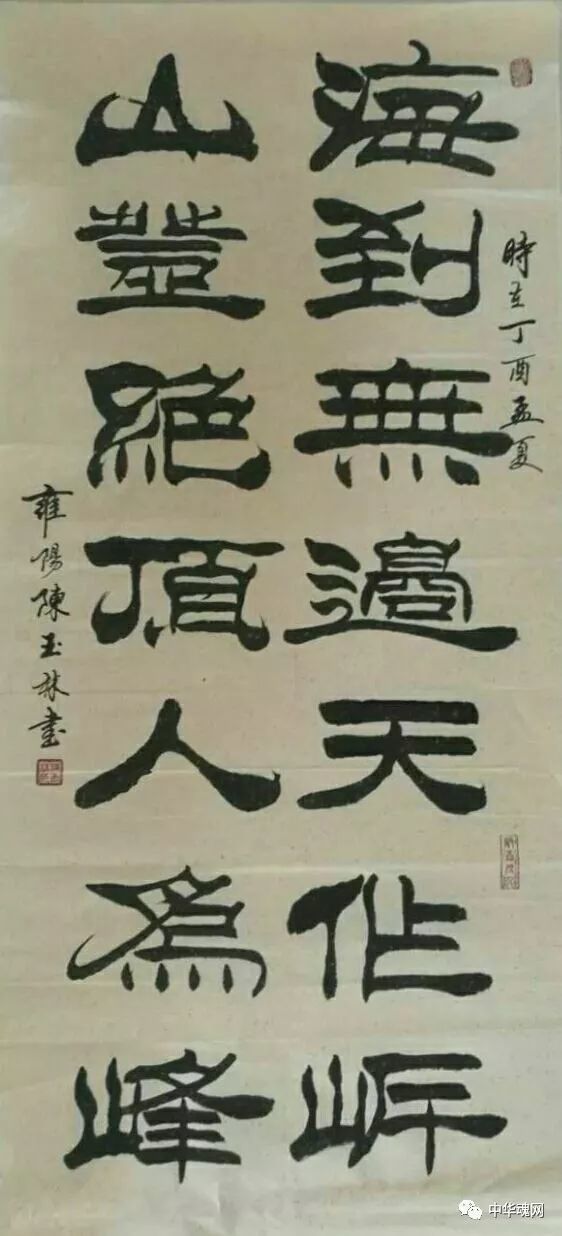 時在丁酉孟夏
海到無邊天作岸
山登絶頂人爲峰
雍陽陳玉林書
中华魂网